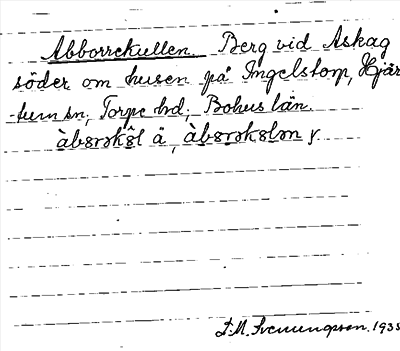 Abborrekullen. Berg vid Askag
söder om husen på Ingelstorp, Hjär
-tum sn, Torpe hd, Bohus län.
àbɜrɔkɜ̂l å, àbɜrɔkɜlɔn y.
S.M. Svenungsson. 1935